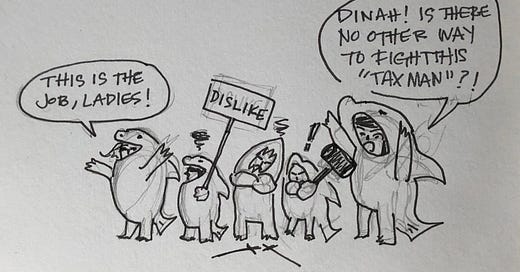 THIS IS THE
JOB, LADIES!
DISLIKE
DINAH! IS THERE
NO OTHER WAY
TO FIGHT THIS
"TAX MAN"?!
!!